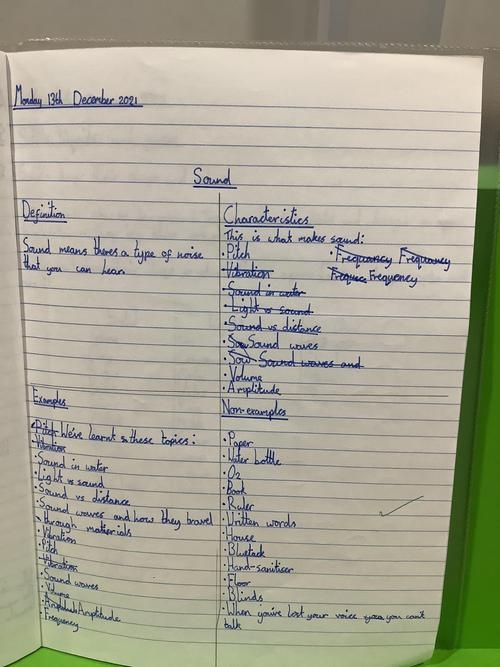 Monday 13th December 2021
Sound
Definition
Sound means there's a type of noise
that you can hear.
Characteristics
This is what makes sound:
• Pitch
• Vibration
• Sound in water
• Light vs sound
• Sound vs distance
• Sow Sound waves
• Sow Sound waves and
• Volume
• Amplitude
• Frequancy Frequancy
Freque Frequency
Examples
• Pitch We've learnt these topics:
• Vibration
• Sound in water
• Light vs sound
• Sound vs distance
• Sound waves and how they travel
through materials
• Vibration
• Pitch
• Vibration
• Sound waves
• Volume
• Amplitude
• Frequency
Non-examples
• Paper
• Water bottle
• O2
• Book
• Ruler
• Written words
• House
• Blutack
• Hand-sanitiser
• Floor
• Blinds
• When you've lost your voice you can't
talk